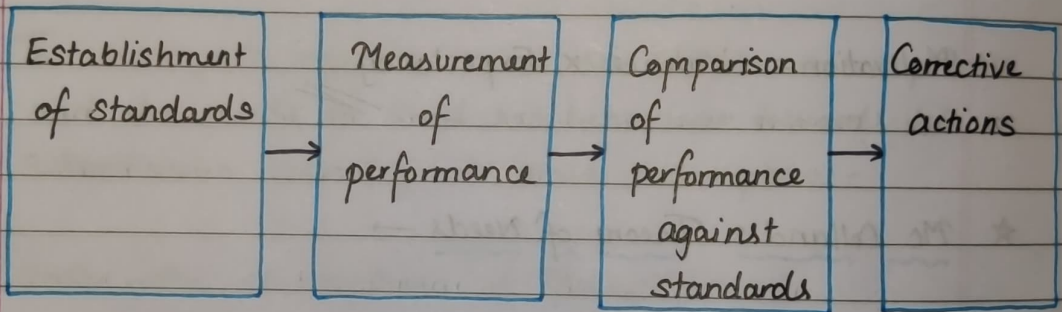 Establishment
of standards
Measurement
of
performance
Comparison
of
performance
against
standards
Corrective
actions